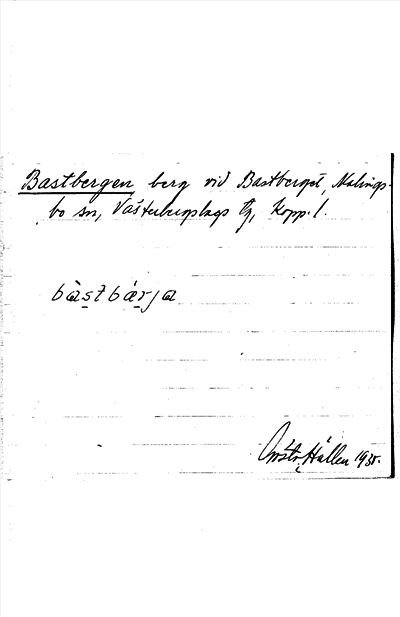 Bastbergen, berg vid Bastberget, Malings-
bo sn, Västerbergslags tg, Kopp. l.
bàstbárja
Hállen 1935.